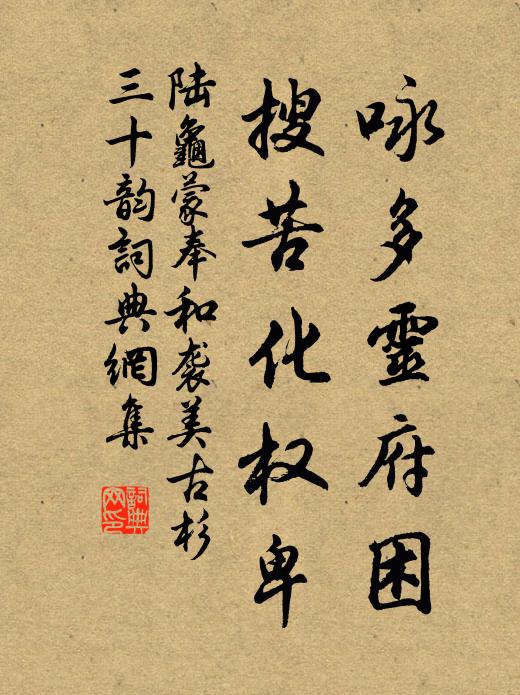 咏多靈府困
搜苦化权卑
陆龜蒙奉和袭美古杉
三十韵詞典網集
詞典
网印